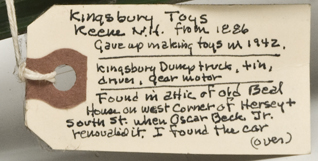 Kingsbury Toys
Keene N.H. from 1886
Gave up making toys in 1942.
Kingsbury Dump truck, tin,
driver, gear motor
Found in attic of old Beal
House on west corner of Hersey +
South St. when Oscar Beck Jr.
renovated it. I found the car
(over)